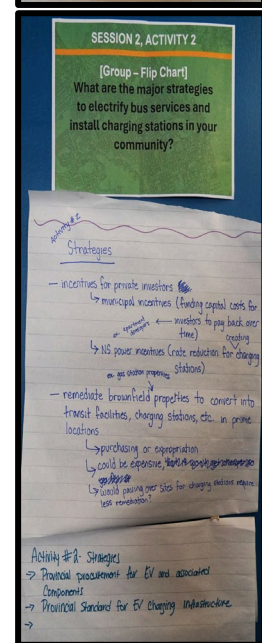 SESSION 2, ACTIVITY 2
[Group – Flip Chart]
What are the major strategies
to electrify bus services and
install charging stations in your
community?
Activity #2
Strategies
— incentives for private investors
↳ municipal incentives (funding capital costs for
ex. apartment developers ← investors to pay back over
time)
↳ NS power incentives (rate reduction for creating charging
stations)
ex. gas station properties
— remediate brownfield properties to convert into
transit facilities, charging stations, etc. in prime
locations
↳ purchasing or expropriation
↳ could be expensive,
↳ would paving over sites for charging stations require
less remediation?
Activity #2 - Strategies
→ Provincial procurement for EV and associated
Components
→ Provincial Standard for EV Charging Infrastructure
→